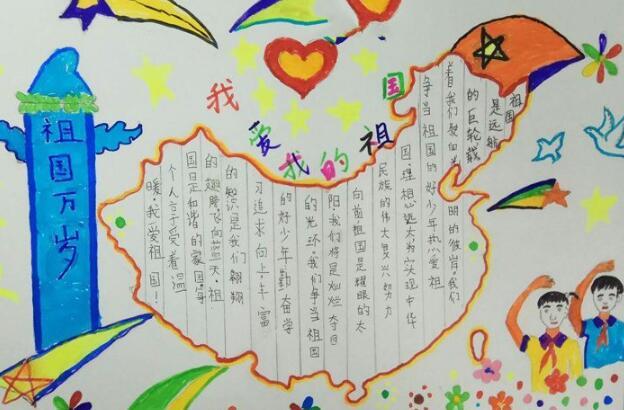 我爱我的祖国
祖国万岁
祖国
是远航
的巨轮载
着我们驶向光
明的彼岸,我们
争当祖国的好少年热爱祖
国,理想远大为实现中华
民族的伟大复兴努力
向前祖国是耀眼的太
阳我们将是灿烂夺目
的光环,我们争当祖国
的好少年勤奋学
习追求向上丰富
的知识是我们翱翔
的翅膀飞向蓝天,祖
国日正和谐的家园,每
个人享受着温
暖,我爱祖国!